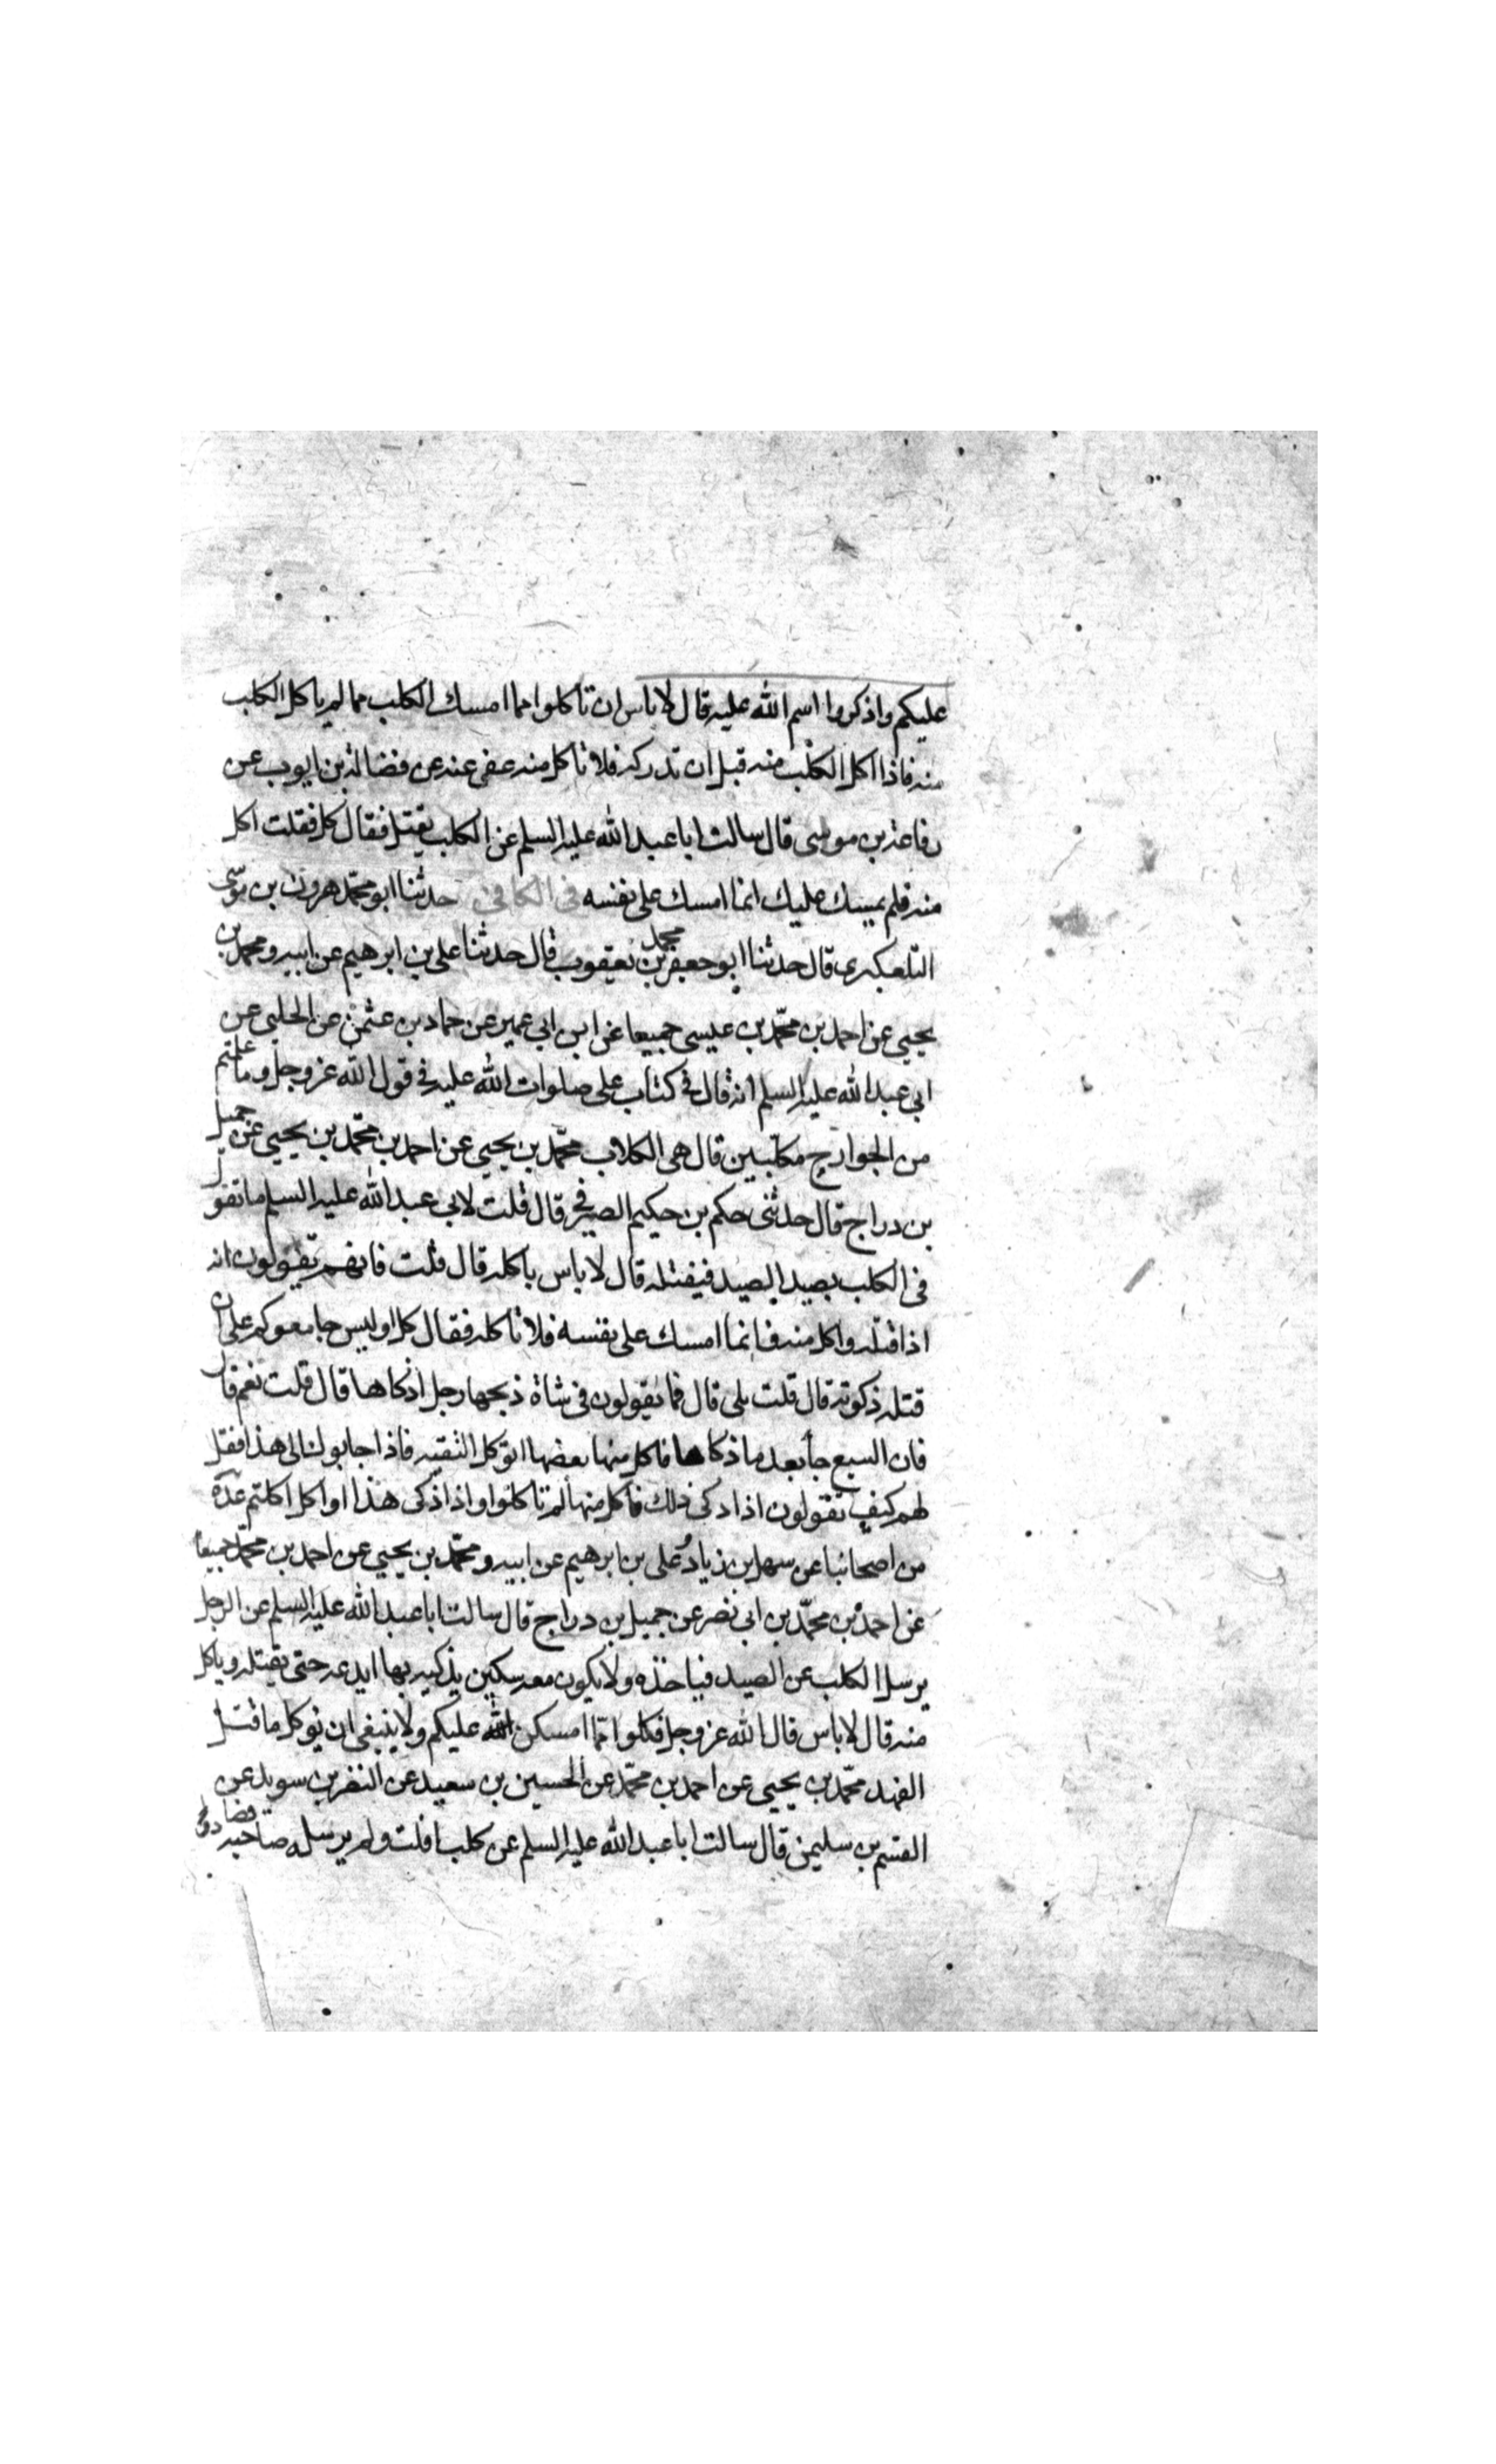 عليكم واذكروا اسم الله عليه قال لا باس ان تاكلوا مما امسك الكلب مما لم ياكل الكلب
منه فاذا اكل الكلب منه قبل ان تدركه فلا تاكل منه عنه عن فضالة بن ايوب عن
رفاعة بن موسى قال سالت ابا عبد الله عليه السلم عن الكلب يقتل فقال كل فقلت اكل
منه فلم يمسك عليك انما امسك على نفسه فى الكافى حدثنا ابو محمد هرون بن موسى
التلعكبرى قال حدثنا ابو جعفر محمد بن يعقوب قال حدثنا على بن ابرهيم عن ابيه ومحمد بن
يحيى عن احمد بن محمد بن عيسى جميعا عن ابن ابي عمير عن حماد بن عثمن عن الحلبي عن
ابي عبد الله عليه السلم انه قال فى كتاب على صلوات الله عليه فى قول الله عز وجل وما علمتم
من الجوارح مكلبين قال هى الكلاب محمد بن يحيى عن احمد بن محمد بن يحيى عن جميل
بن دراج قال حدثنى حكم بن حكيم الصيرفى قال قلت لابي عبد الله عليه السلم ما تقول
فى الكلب يصيد الصيد فيقتله قال لا باس باكله قال قلت فانهم تقولون انه
اذا قتله واكل منه فانما امسك على نفسه فلا تاكله فقال كل اوليس جامعوكم على ان
قتله ذكوته قال قلت بلى قال فما يقولون فى شاة ذبحها رجل اذكاها قال قلت نعم قال
فان السبع جا بعد ما ذكاها فاكل منها بعضها اتوكل البقيه فاذا اجابو لنا الى هذا فقل
لهم كيف تقولون اذا ذكى ذلك فاكل منها لم تاكلوا واذا ذكى هذا او اكل اكلتم عدة
من اصحابنا عن سهل بن زياد وعلى بن ابرهيم عن ابيه ومحمد بن يحيى عن احمد بن محمد جميعا
عن احمد بن محمد بن ابى نصر عن جميل بن دراج قال سالت ابا عبد الله عليه السلم عن الرجل
يرسل الكلب عن الصيد فياخذه ولا يكون معه سكين يذكيه بها ايدعه حتى يقتله وياكل
منه قال لا باس قال الله عز وجل فكلوا مما امسكن الله عليكم ولا ينبغى ان يوكل ما قتل
الفهد محمد بن يحيى عن احمد بن محمد عن الحسين بن سعيد عن النضر بن سويد عن
القسم بن سليمن قال سالت ابا عبد الله عليه السلم عن كلب افلت ولم يرسله صاحبه فصاد